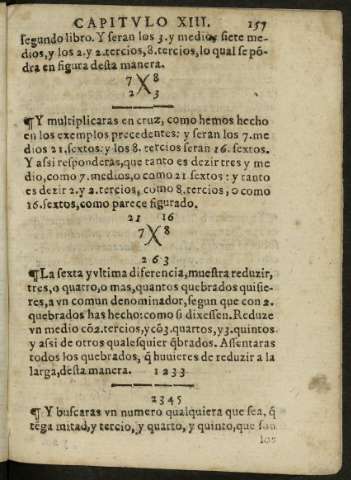 CAPITVLO XIII. 157
segundo libro. Y seran los 3. y medio, siete me-
dios, y los 2. y 2. tercios, 8. tercios, lo qual se põ-
dra en figura desta manera.
7 X 8
2 3
¶ Y multiplicaras en cruz, como hemos hecho
en los exemplos precedentes: y seran los 7. me-
dios 21. sextos: y los 8. tercios seran 16. sextos.
Y assi responderas, que tanto es dezir tres y me
dio, como 7. medios, o como 21 sextos: y tanto
es dezir 2. y 2. tercios, como 8. tercios, o como
16. sextos, como parece figurado.
21 16
7 X 8
2 6 3
¶ La sexta y vltima diferencia, muestra reduzir,
tres, o quatro, o mas, quantos quebrados quisie-
res, a vn comun denominador, segun que con 2.
quebrados has hecho: como si dixessen. Reduze
vn medio cõ 2. tercios, y cõ 3. quartos, y 3. quintos
y assi de otros qualesquier q̃brados. Assentaras
todos los quebrados, q̃ huuieres de reduzir a la
larga, desta manera. 1 2 3 3
2 3 4 5
¶ Y buscaras vn numero qualquiera que sea, q̃
tẽga mitad, y tercio, y quarto, y quinto, que son
los